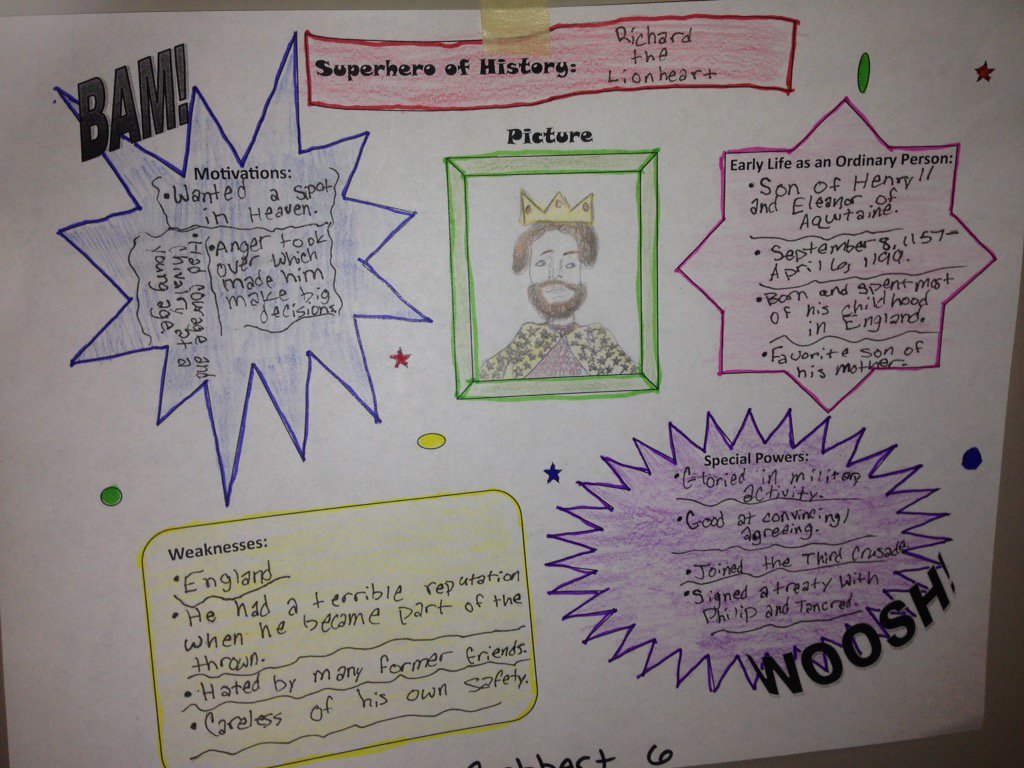 BAM!
Superhero of History:
Richard
the
Lionheart
Motivations:
•Wanted a spot
in Heaven.
•Anger took
over which
made him
make big
decisions.
•Had courage and
chivalry at a
young age.
Picture
Early Life as an Ordinary Person:
•Son of Henry II
and Eleanor of
Aquitaine.
•September 8, 1157-
April 6, 1199.
•Born and spent most
of his childhood
in England.
•Favorite son of
his mother.
Weaknesses:
•England
•He had a terrible reputation
when he became part of the
thrown.
•Hated by many former friends.
•Careless of his own safety.
Special Powers:
•Gloried in military
activity.
•Good at convincing/
agreeing.
•Joined the Third Crusade
•Signed a treaty with
Philip and Tancred.
WOOSH!
6